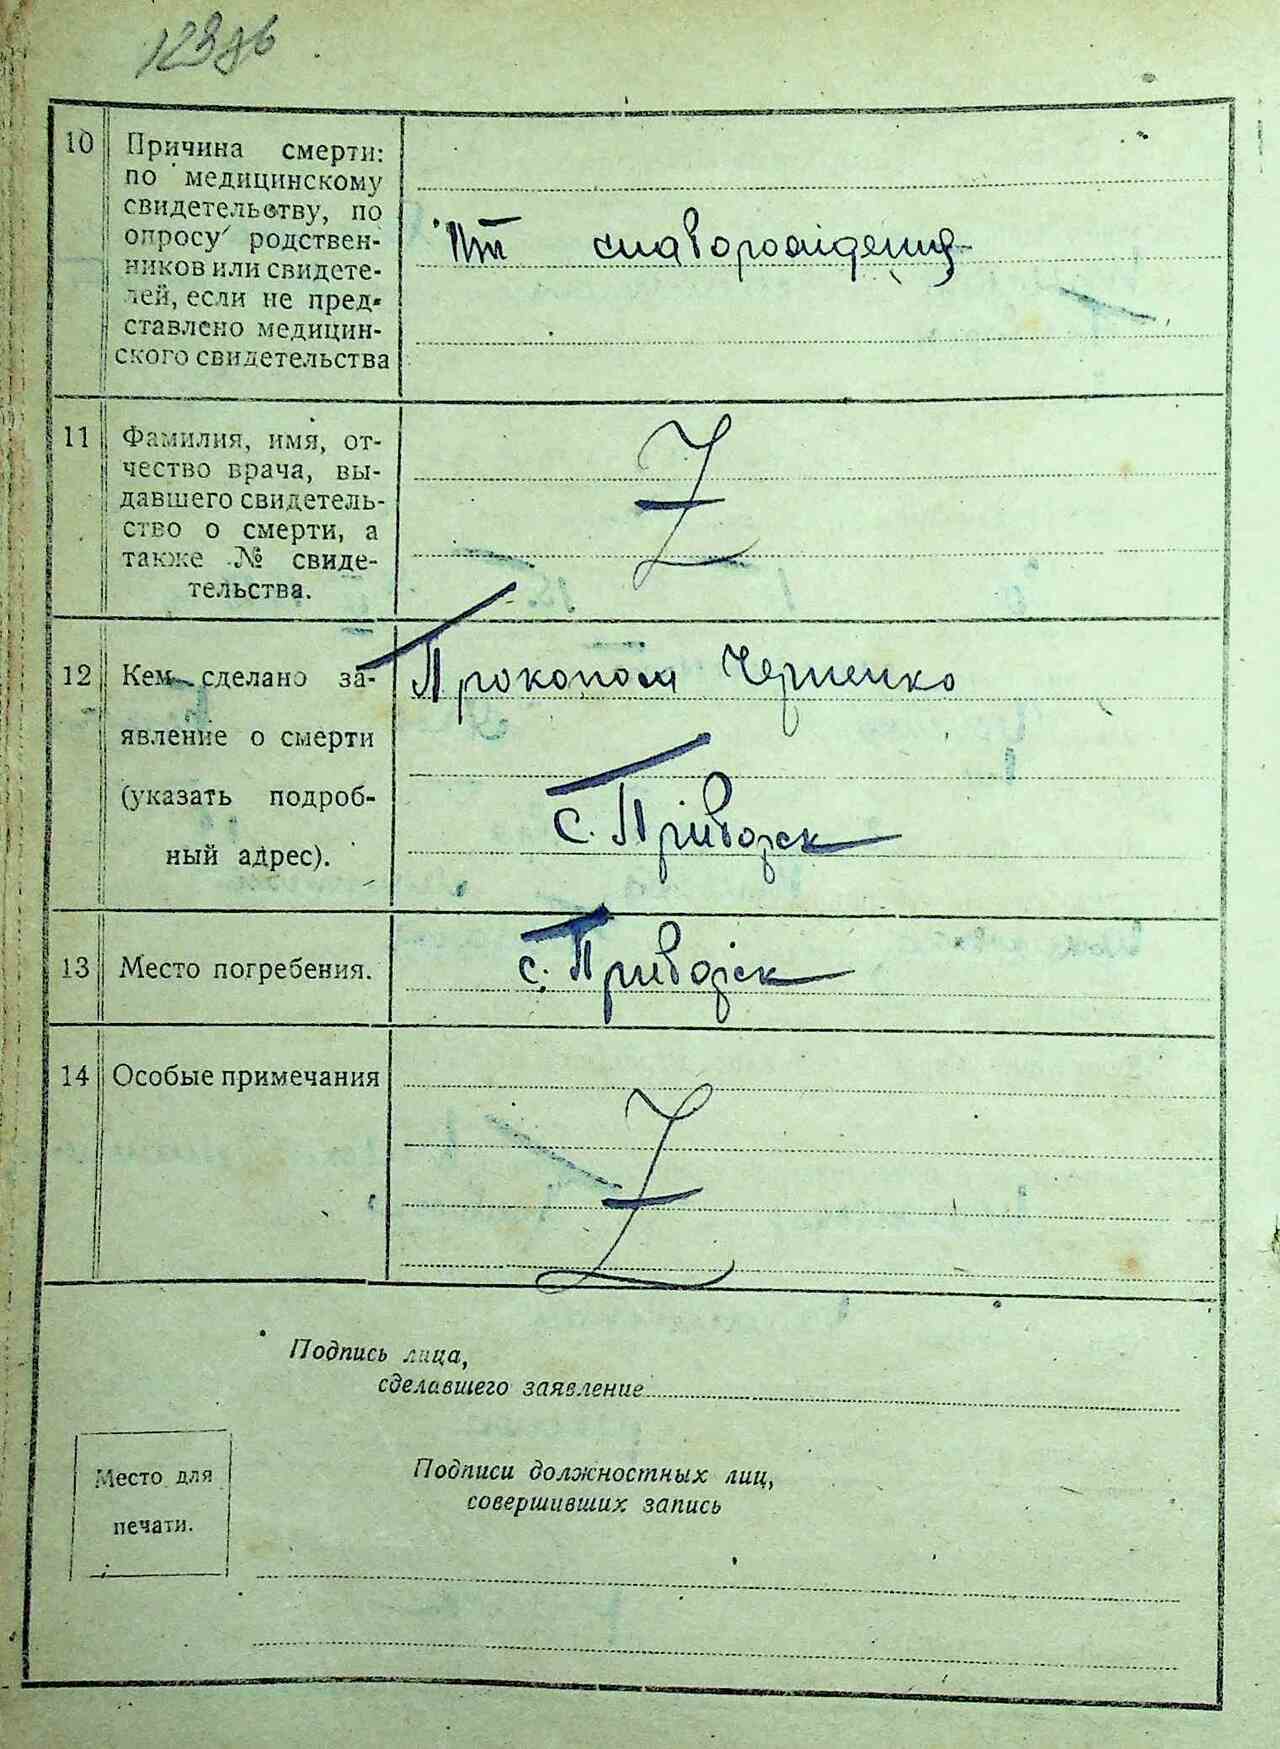 123зв
10 Причина смерти:
по медицинскому
свидетельству, по
опросу родствен-
ников или свидете-
лей, если не пред-
ставлено медицин-
ского свидетельства
От слаборождения
11 Фамилия, имя, от-
чество врача, вы-
давшего свидетель-
ство о смерти, а
также № свиде-
тельства.
Z
12 Кем сделано за-
явление о смерти
(указать подроб-
ный адрес).
Прокопом Черненко
с. Приворск
13 Место погребения.
с. Приворск
14 Особые примечания
Z
Подпись лица,
сделавшего заявление
Место для
печати.
Подписи должностных лиц,
совершивших запись